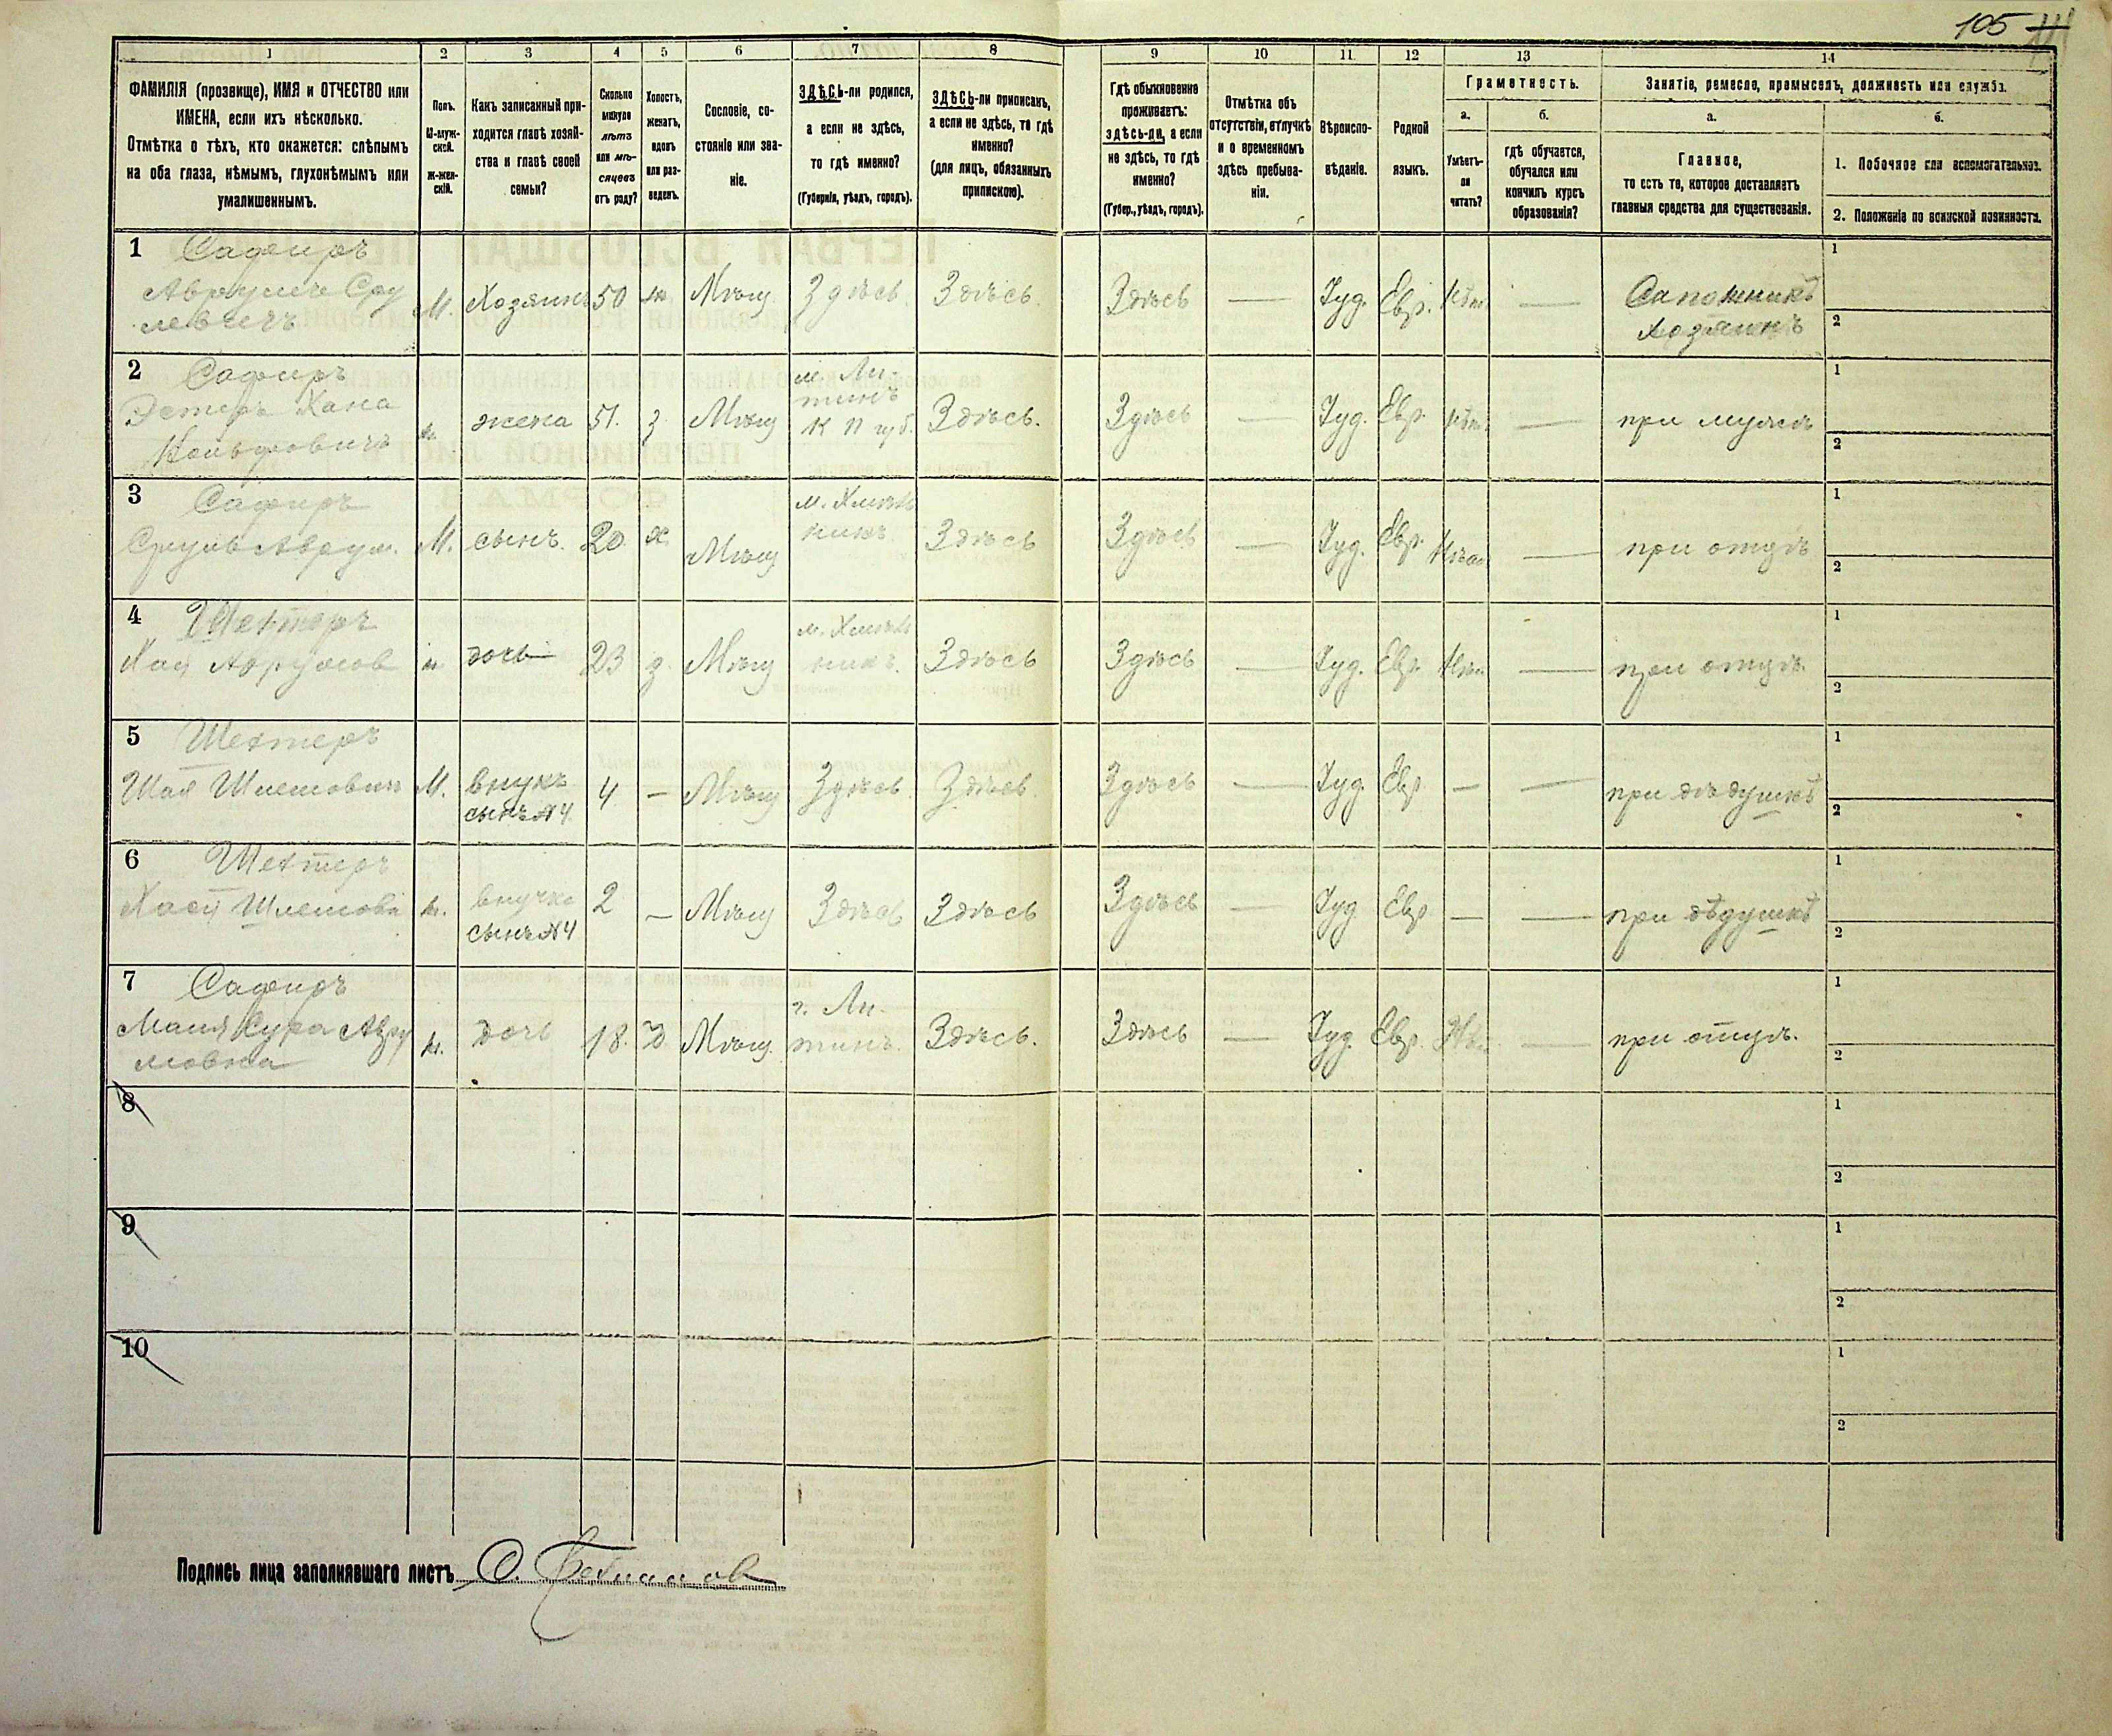 105
1 2 3 4 5 6 7 8 9 10 11 12 13 14
ФАМИЛІЯ (прозвище), ИМЯ и ОТЧЕСТВО или
ИМЕНА, если ихъ нѣсколько.
Отмѣтка о тѣхъ, кто окажется: слѣпымъ
на оба глаза, нѣмымъ, глухонѣмымъ или
умалишеннымъ.
Полъ.
М-муж-
ской.
ж-жен-
скій.
Какъ записанный при-
ходится главѣ хозяй-
ства и главѣ своей
семьи?
Сколько
минуло
лѣтъ
или мѣ-
сяцевъ
отъ роду?
Холостъ,
женатъ,
вдовъ
или раз-
веденъ.
Сословіе, со-
стояніе или зва-
ніе.
ЗДѢСЬ-ли родился,
а если не здѣсь,
то гдѣ именно?
(Губернія, уѣздъ, городъ).
ЗДѢСЬ-ли приписанъ,
а если не здѣсь, то гдѣ
именно?
(для лицъ, обязанныхъ
припискою).
Гдѣ обыкновенно
проживаетъ:
здѣсь-ли, а если
не здѣсь, то гдѣ
именно?
(Губер., уѣздъ, городъ).
Отмѣтка объ
отсутствіи, отлучкѣ
и о временномъ
здѣсь пребыва-
ніи.
Вѣроиспо-
вѣданіе.
Родной
языкъ.
Грамотность.
а.
Умѣетъ-
ли
читать?
б.
гдѣ обучается,
обучался или
кончилъ курсъ
образованія?
Занятіе, ремесло, промыселъ, должность или служба.
а.
Главное,
то есть то, которое доставляетъ
главныя средства для существованія.
б.
1. Побочное или вспомогательное.
2. Положеніе по воинской повинности.
1 Сафиръ
Аврумъ Сру
левичъ
М. Хозяинъ 50 ж. Мѣщ. Здѣсь Здѣсь Здѣсь — Іуд. Евр. Нѣт. — Сапожникъ
хозяинъ
1
2
2 Сафиръ
Эстеръ Хана
ж. жена 51. з Мѣщ м. Ли-
тинъ
К П губ. Здѣсь. Здѣсь — Іуд. Евр. Нѣт. — при мужѣ
1
2
3 Сафиръ
Сруль Аврум.
М. сынъ. 20 х. Мѣщ м. Хмѣль
никъ Здѣсь Здѣсь — Іуд. Евр. Нѣт. — при отцѣ
1
2
4 Шехтеръ
Хая Аврумов
ж дочь 23 з. Мѣщ м. Хмѣль
никъ. Здѣсь Здѣсь — Іуд. Евр. Нѣт. — при отцѣ.
1
2
5 Шехтеръ
Шая Шлемович М. внукъ
сынъ №4. 4 — Мѣщ Здѣсь. Здѣсь Здѣсь — Іуд. Евр. — — при дѣдушкѣ
1
2
6 Шехтеръ
Шлемовн ж. внучка
сынъ №4 2 — Мѣщ Здѣсь Здѣсь Здѣсь — Іуд Евр. — — при дѣдушкѣ
1
2
7 Сафиръ
Маня Сура Авру
мовна
ж. дочь 18. Д Мѣщ. г. Ли-
тинъ. Здѣсь. Здѣсь — Іуд. Евр. Нѣт. — при отцѣ.
1
2
8
1
2
9
1
2
10
1
2
Подпись лица заполнявшаго листъ